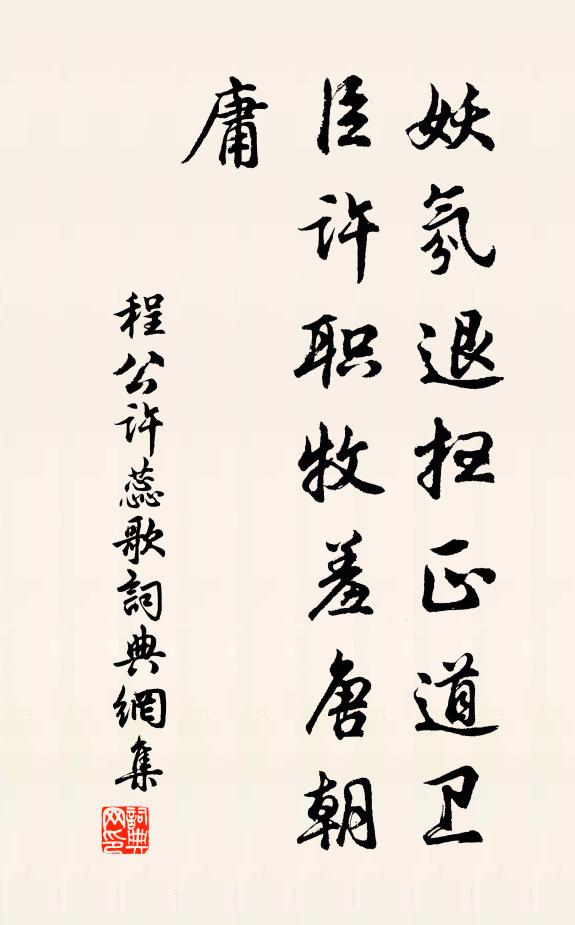 妖氛退扫正道卫
臣许职牧羞唐朝
庸
程公许蕊歌詞典網集
詞典网印